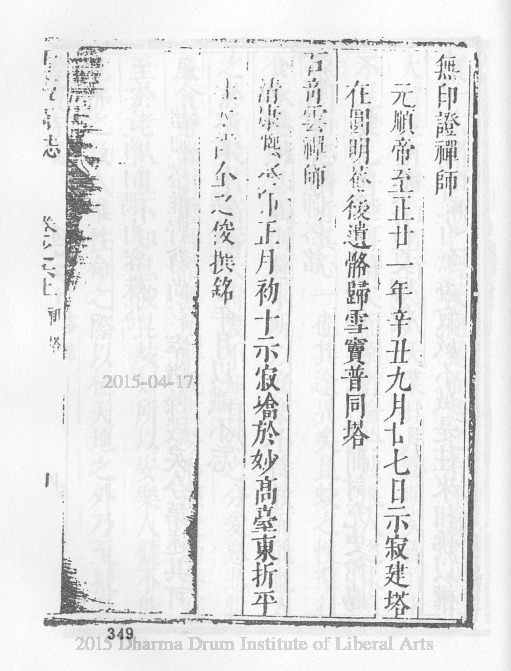 無印證禪師
元順帝至正廿一年辛丑九月七七日示寂建塔
在圓明菴後遺骼歸雪竇普同塔
奇雲禪師
清康熙 卯正月初十示寂塔於妙高臺東折平
仝之俊撰銘
志 卷之六上
2015-04-17
349
2015 Dharma Drum Institute of Liberal Arts